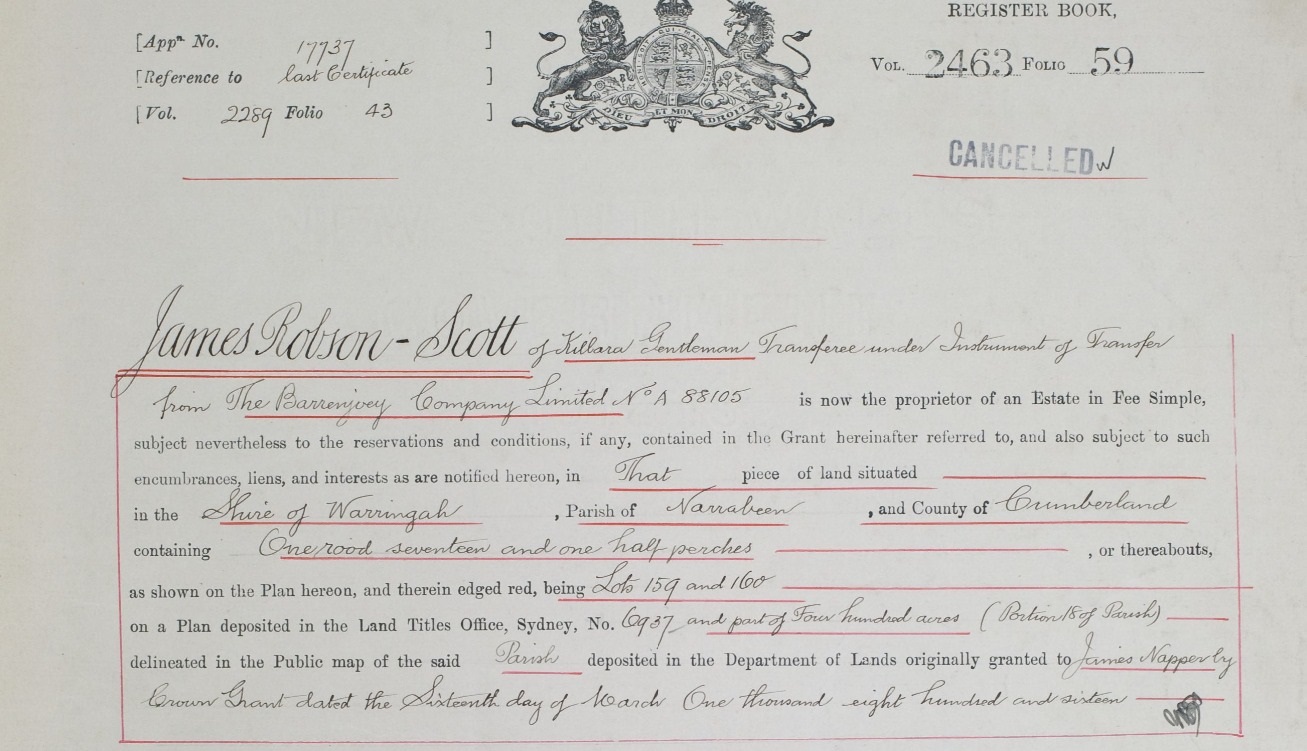 [Appn No. 17737 ]
[Reference to last Certificate ]
[Vol. 2289 Folio 43 ]
DIEU ET MON DROIT
REGISTER BOOK,
VOL. 2463 FOLIO 59
CANCELLED
James Robson - Scott of Killara Gentleman Transferee under Instrument of Transfer
from The Barrenjoey Company Limited No A 88105 is now the proprietor of an Estate in Fee Simple,
subject nevertheless to the reservations and conditions, if any, contained in the Grant hereinafter referred to, and also subject to such
encumbrances, liens, and interests as are notified hereon, in That piece of land situated
in the Shire of Warringah , Parish of Narrabeen , and County of Cumberland
containing One rood seventeen and one half perches , or thereabouts,
as shown on the Plan hereon, and therein edged red, being Lots 159 and 160
on a Plan deposited in the Land Titles Office, Sydney, No. 6937 and part of Four hundred acres (Portion 18 of Parish)
delineated in the Public map of the said Parish deposited in the Department of Lands originally granted to James Napper by
Crown Grant dated the Sixteenth day of March One thousand eight hundred and sixteen